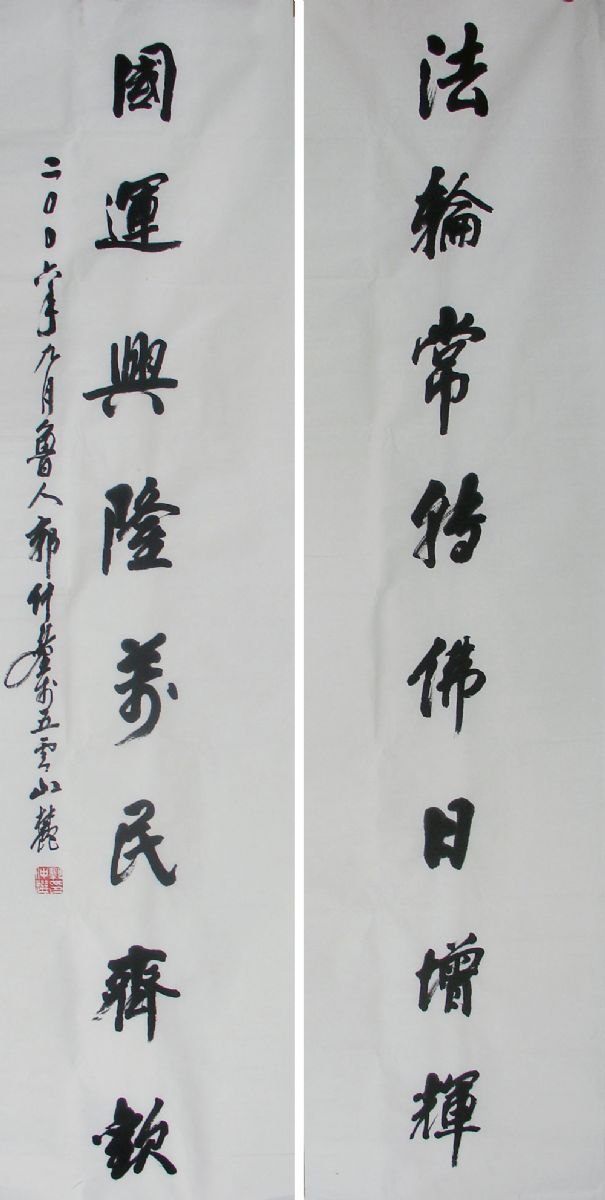 法輪常转佛日增輝
國運興隆萬民齊歡
二00六年九月魯人郭仲
於五雲山麓